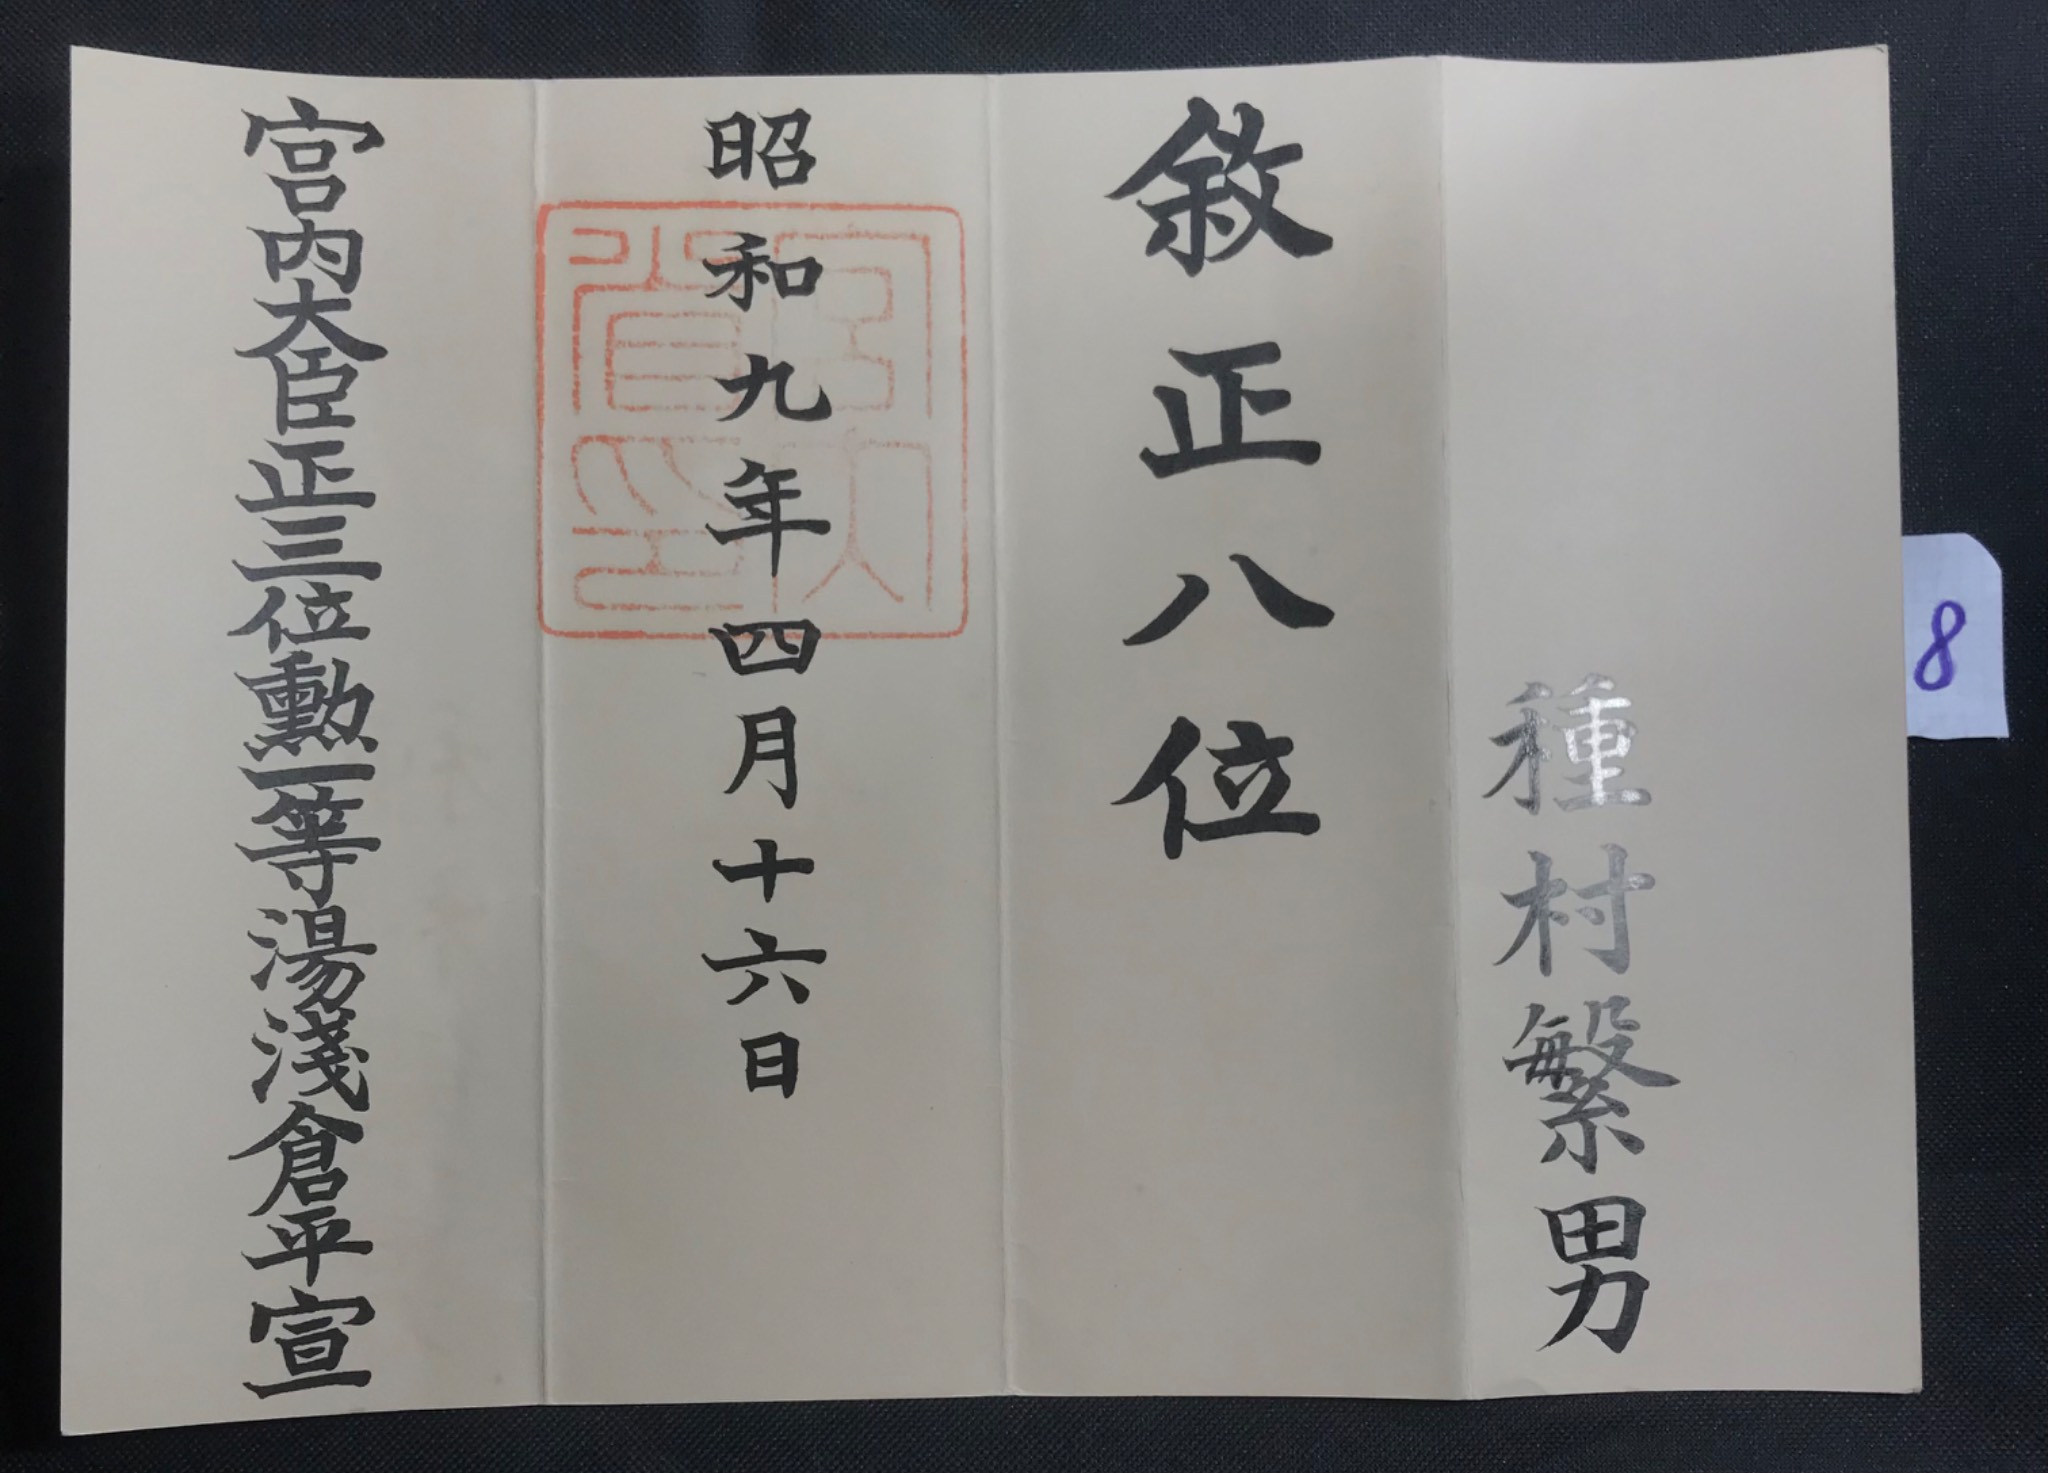 種村繁男
敘正八位
昭和九年四月十六日
宮内省印
宮内大臣正三位勲一等湯淺倉平宣
8